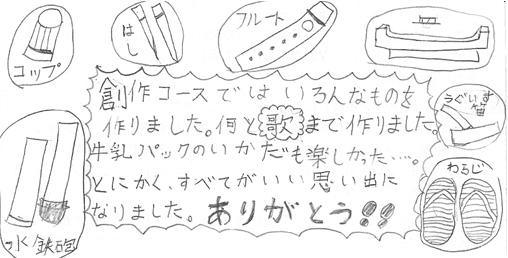 コップ
はし
フルート
うぐいす
笛
わらじ
水鉄砲
創作コースではいろんなものを
作りました。何と歌まで作りました。
牛乳パックのいかだも楽しかった…。
とにかく、すべてがいい思い出に
なりました。ありがとう!!